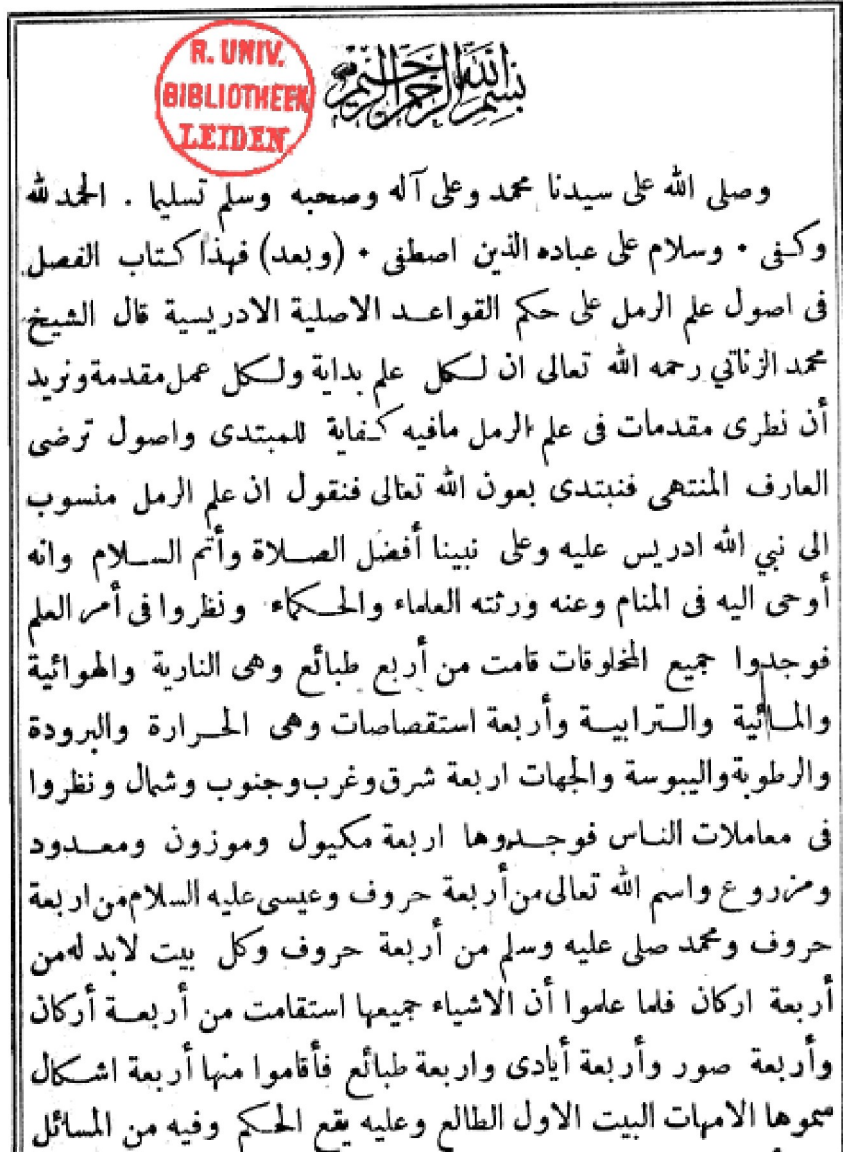 R. UNIV.
BIBLIOTHEEK
LEIDEN
بسم الله الرحمن الرحيم
وصلى الله على سيدنا محمد وعلى آله وصحبه وسلم تسليما . الحمد لله
وكفى • وسلام على عباده الذين اصطفى • (وبعد) فهذا كتاب الفصل
فى اصول علم الرمل على حكم القواعد الاصلية الادريسية قال الشيخ
محمد الزناتي رحمه الله تعالى ان لكل علم بداية ولكل عمل مقدمة ونريد
أن نطرى مقدمات فى علم الرمل مافيه كفاية للمبتدى واصول ترضى
العارف المنتهى فنبتدى بعون الله تعالى فنقول ان علم الرمل منسوب
الى نبي الله ادريس عليه وعلى نبينا أفضل الصلاة وأتم السلام وانه
أوحى اليه فى المنام وعنه ورثته العلماء والحكماء ونظروا فى أمر العلم
فوجدوا جميع المخلوقات قامت من أربع طبائع وهى النارية والهوائية
والمائية والترابية وأربعة استقصاصات وهى الحرارة والبرودة
والرطوبة واليبوسة والجهات اربعة شرق وغرب وجنوب وشمال ونظروا
فى معاملات الناس فوجدوها اربعة مكيول وموزون ومعدود
ومزروع واسم الله تعالى من أربعة حروف وعيسى عليه السلام من اربعة
حروف ومحمد صلى عليه وسلم من أربعة حروف وكل بيت لابد له من
أربعة اركان فلما علموا أن الاشياء جميعها استقامت من أربعة أركان
وأربعة صور وأربعة أيادى واربعة طبائع فأقاموا منها أربعة اشكال
سموها الامهات البيت الاول الطالع وعليه يقع الحكم وفيه من المسائل